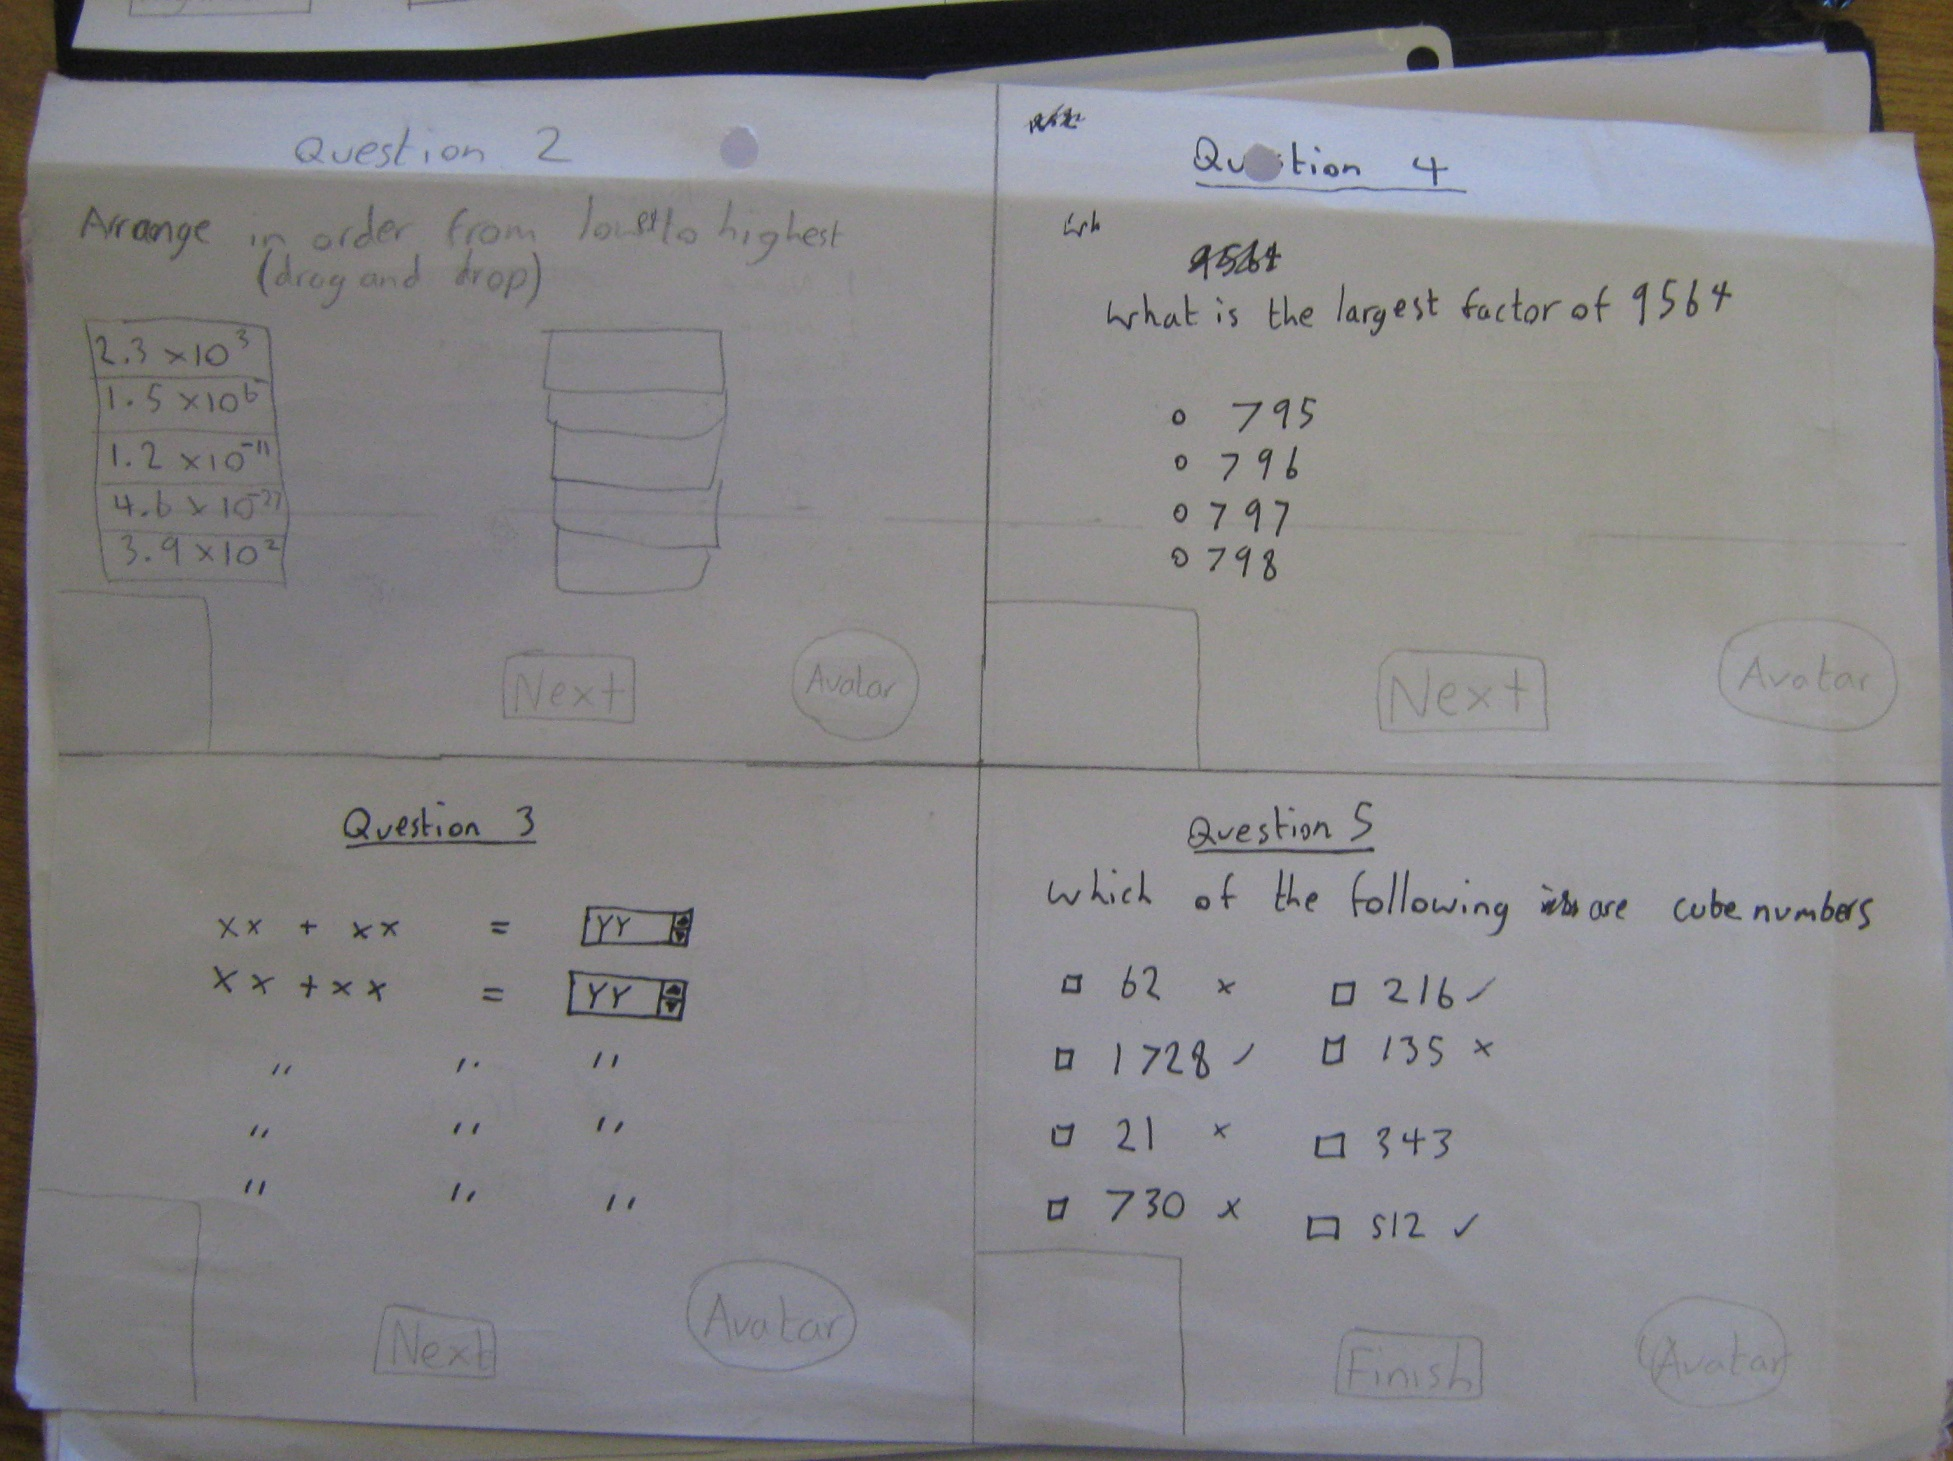 Question 2
Arrange in order from lowest to highest
(drag and drop)
2.3 × 10³
1.5 × 10⁶
1.2 × 10⁻¹¹
4.6 × 10⁻²⁷
3.9 × 10²
Next
Avatar
Question 4
9564
What is the largest factor of 9564
795
796
797
798
Next
Avatar
Question 3
xx + xx = YY
xx + xx = YY
" " "
" " "
" " "
Next
Avatar
Question 5
Which of the following are cube numbers
62 × 216 ✓
1728 ✓ 135 ×
21 × 343
730 × 512 ✓
Finish
Avatar